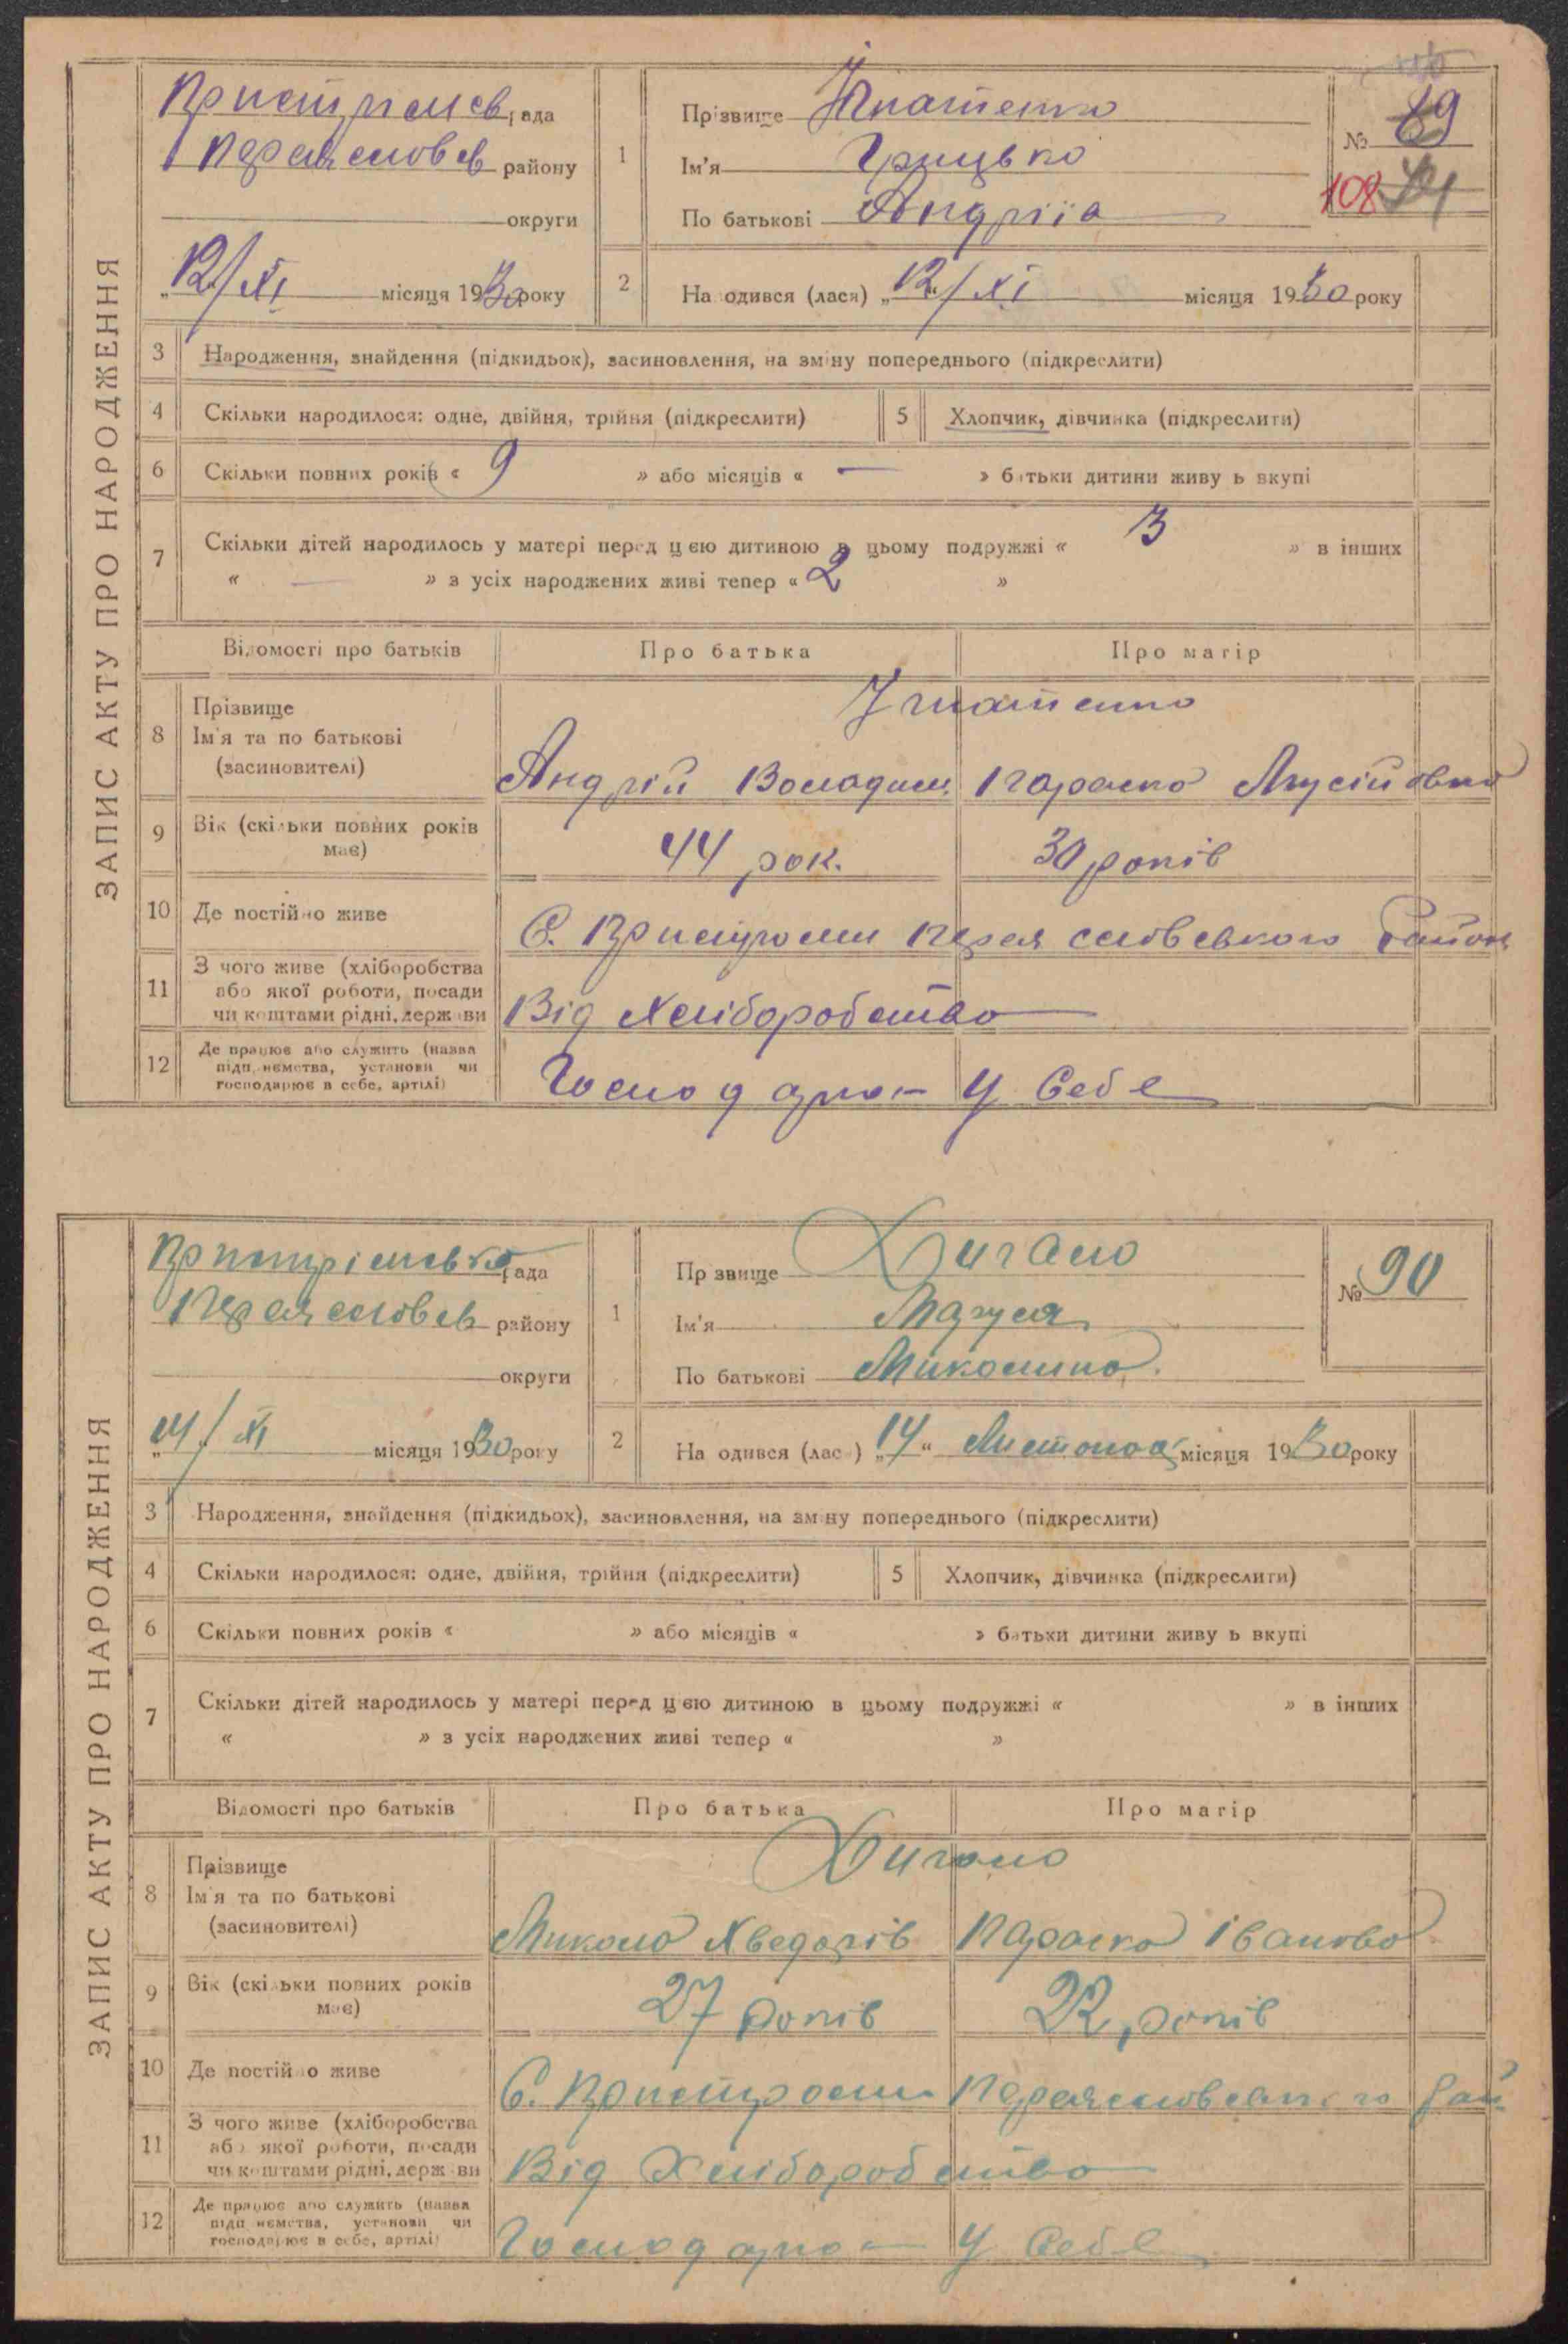 ЗАПИС АКТУ ПРО НАРОДЖЕННЯ
рада
Переяславсь району
округи
„12/XI місяця 1930 року
1 Прізвище Ігнатенко
Ім'я Грицько
По батькові Андріїв
№ 89
108
2 Народився (лася) „12/XI місяця 1930 року
3 Народження, знайдення (підкидьок), засиновлення, на зміну попереднього (підкреслити)
4 Скільки народилося: одне, двійня, трійня (підкреслити) 5 Хлопчик, дівчинка (підкреслити)
6 Скільки повних років « 9 » або місяців « — » батьки дитини живуть вкупі
7 Скільки дітей народилось у матері перед цією дитиною в цьому подружжі « 3 » в інших
« — » з усіх народжених живі тепер « 2 »
Відомості про батьків Про батька Про матір
8 Прізвище
Ім'я та по батькові
(засиновителі)
Ігнатенко
Андрій Володим. Параска
9 Вік (скільки повних років має)
44 рок. 30 років
10 Де постійно живе
С. Пристроми Переяславського Район
11 З чого живе (хліборобства
або якої роботи, посади
чи коштами рідні, держави
Від Хліборобства
12 Де працює або служить (назва
підприємства, установи чи
господарює в себе, артілі)
Господарює У Себе
ЗАПИС АКТУ ПРО НАРОДЖЕННЯ
рада
Переяславсь району
округи
„14/XI місяця 1930 року
1 Прізвище
Ім'я Маруся
По батькові Миколина
№ 90
2 Народився (лася) „14“ Листопад місяця 1930 року
3 Народження, знайдення (підкидьок), засиновлення, на зміну попереднього (підкреслити)
4 Скільки народилося: одне, двійня, трійня (підкреслити) 5 Хлопчик, дівчинка (підкреслити)
6 Скільки повних років « » або місяців « » батьки дитини живуть вкупі
7 Скільки дітей народилось у матері перед цією дитиною в цьому подружжі « » в інших
« » з усіх народжених живі тепер « »
Відомості про батьків Про батька Про матір
8 Прізвище
Ім'я та по батькові
(засиновителі)
Микола Хведорів Параска Іванова
9 Вік (скільки повних років має)
27 років 22 років
10 Де постійно живе
С. Пристроми Переяславського Рай.
11 З чого живе (хліборобства
або якої роботи, посади
чи коштами рідні, держави
Від Хліборобства
12 Де працює або служить (назва
підприємства, установи чи
господарює в себе, артілі)
Господарює У Себе